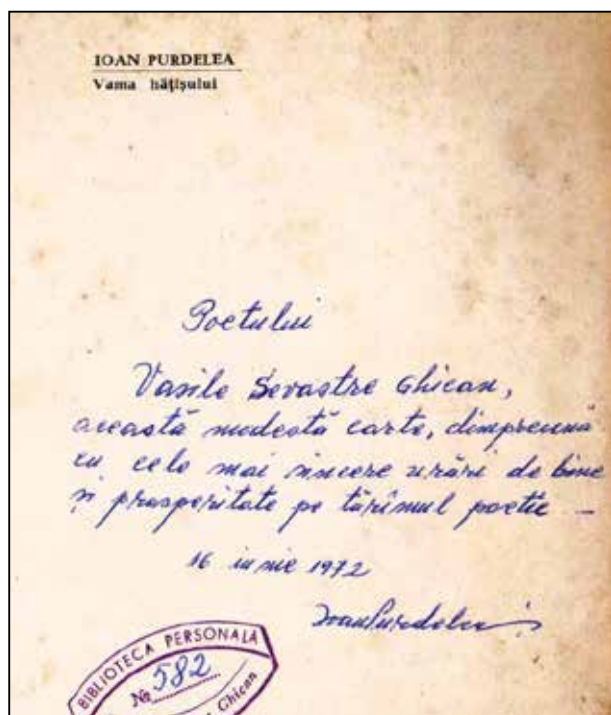 IOAN PURDELEA
Vama hățișului
Poetului
Vasile Sevastre Ghican,
această modestă carte, dimpreună
cu cele mai sincere urări de bine
și prosperitate pe tărîmul poetic —
16 iunie 1972
Ioan Purdelea
BIBLIOTECA PERSONALĂ
№ 582
Ghican